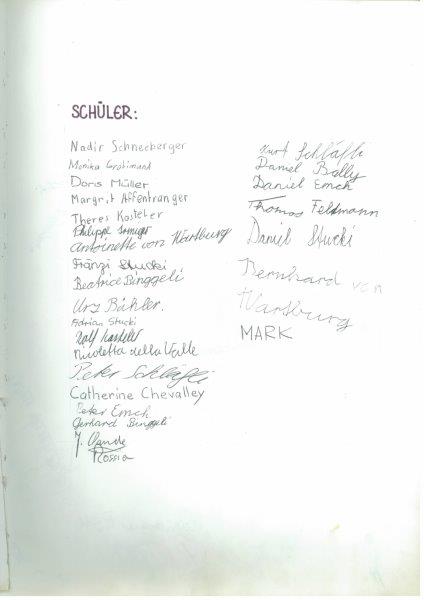 SCHÜLER:
Nadir Schneeberger
Monika Grütimann
Doris Müller
Margrit Affentranger
Theres Kosteler
Philippe
Antoinette von Wartburg
Fränzi Stucki
Beatrice Binggeli
Urs Bühler.
Adrian Stucki
Rolf
Nicoletta della Valle
Peter Schläfli
Catherine Chevalley
Peter Emch
Gerhard Binggeli
J.
Rossia
Kurt Schläfli
Daniel Bally
Daniel Emch
Thomas Feldmann
Daniel Stucki
Bernhard von
Wartburg
MARK